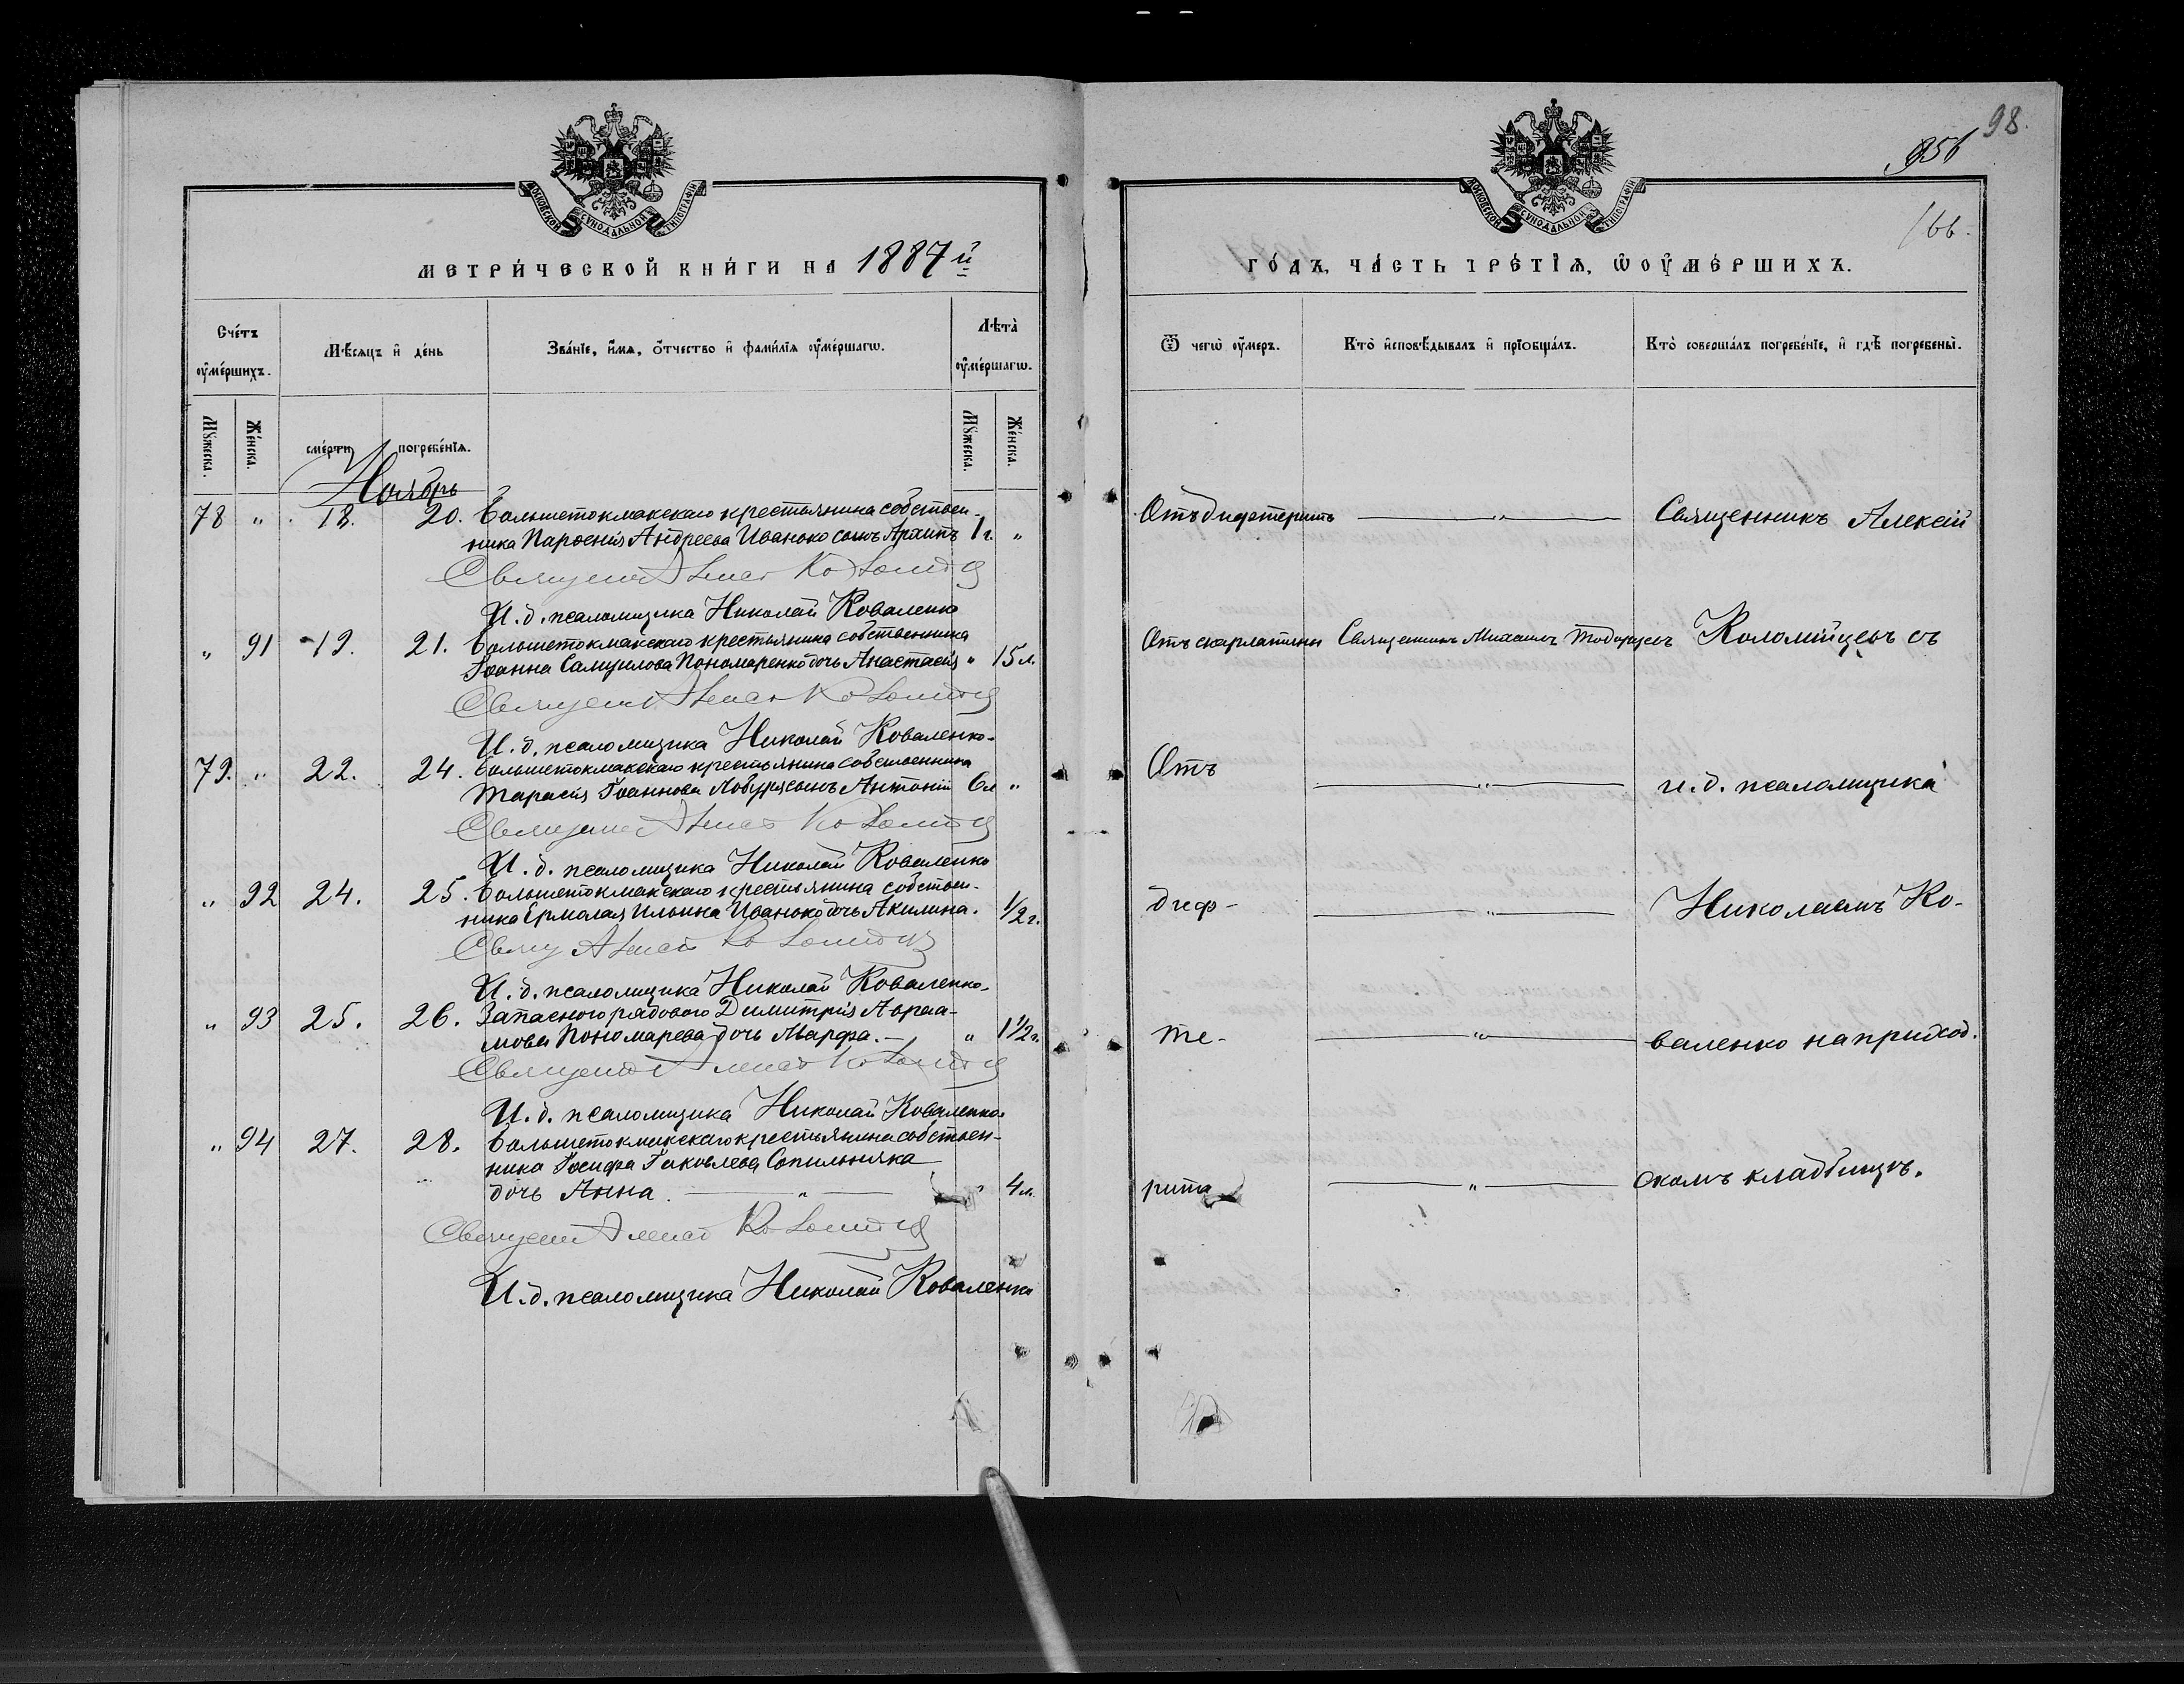 МОСКОВСКОЙ СѴНОДАЛЬНОЙ ТИПОГРАФІИ
МЕТРИ́ЧЕСКОЙ КНИ́ГИ НА 1887й
Сче́тъ ᲂу҆ме́ршихъ.
Мѣ́сяцъ и҆ де́нь
Зва́нїе, и҆́мѧ, ѻ҆́тчество и҆ фами́лїѧ ᲂу҆ме́ршагѡ.
Лѣта̀ ᲂу҆ме́ршагѡ.
Мꙋ́жеска.
Же́нска.
сме́рти
погребе́нїѧ.
Мꙋ́жеска.
Же́нска.
Ноябрь
78 " 18. 20. Большетокмакскаго крестьянина собствен-
ника Парѳенія Андреева Иванько сынъ Архипъ 1 г. "
Священ Алексі Коломійц
И. д. псаломщика Николай Коваленко
" 91 19. 21. Большетокмакскаго крестьянина собственника
Іоанна Самуилова Пономаренко дочь Анастасія " 15 л.
Священ Алексі Коломійц
И. д. псаломщика Николай Коваленко.
79. " 22. 24. Большетокмакскаго крестьянина собственника
Тарасія Іоаннова Лобуря сынъ Антоній 6 л "
Священ Алексі Коломійц
И. д. псаломщика Николай Коваленко
" 92 24. 25. Большетокмакскаго крестьянина собствен-
ника Ермолая Ильина Иванько дочь Акилина. 1/2 г.
Свящ Алексі Коломійц
И. д. псаломщика Николай Коваленко.
" 93 25. 26. Запасного рядового Димитрія Авраа-
мова Пономарева дочь Марфа. — " 1 1/2 г.
Священ Алексі Коломійц
И. д. псаломщика Николай Коваленко.
" 94 27. 28. Большетокмакскаго крестьянина собствен-
ника Іосифа Іаковлева Сопильняка
дочь Анна. — " — " 4 л.
Священ Алексі Коломійц
И. д. псаломщика Николай Коваленко
98.
956
166.
МОСКОВСКОЙ СѴНОДАЛЬНОЙ ТИПОГРАФІИ
ГО́ДЪ, ЧА́СТЬ ТРЕ́ТЇѦ, Ѡ҆ ОУ҆МЕ́РШИХЪ.
Ѿ чегѡ̀ ᲂу҆́меръ.
Кто̀ и҆сповѣ́дывалъ и҆ прїѡбща́лъ.
Кто̀ соверша́лъ погребе́нїе, и҆ гдѣ̀ погребены̀.
Отъ дифтерита — " — Священникъ Алексій
Отъ скарлатины Священникъ Михаилъ Тодорцевъ Коломійцевъ съ
Отъ — " — и. д. псаломщика
диф- — " — Николаемъ Ко-
те- — " — валенко на приход.
рита — " — скомъ кладбищѣ.